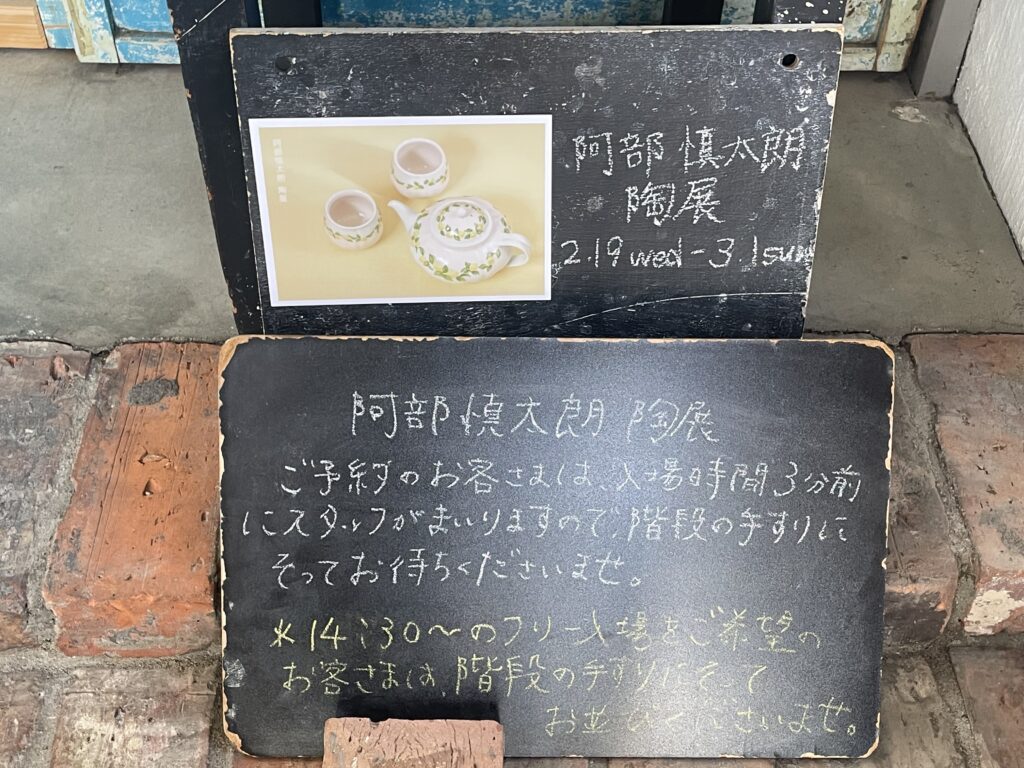 阿部慎太朗 陶展
阿部 慎太朗
陶展
2.19 wed - 3.1 sun
阿部 慎太朗 陶展
ご予約のお客さまは、入場時間3分前
にスタッフがまいりますので、階段の手すりに
そってお待ちくださいませ。
*14:30～のフリー入場をご希望の
お客さまは、階段の手すりにそって
お並びくださいませ。